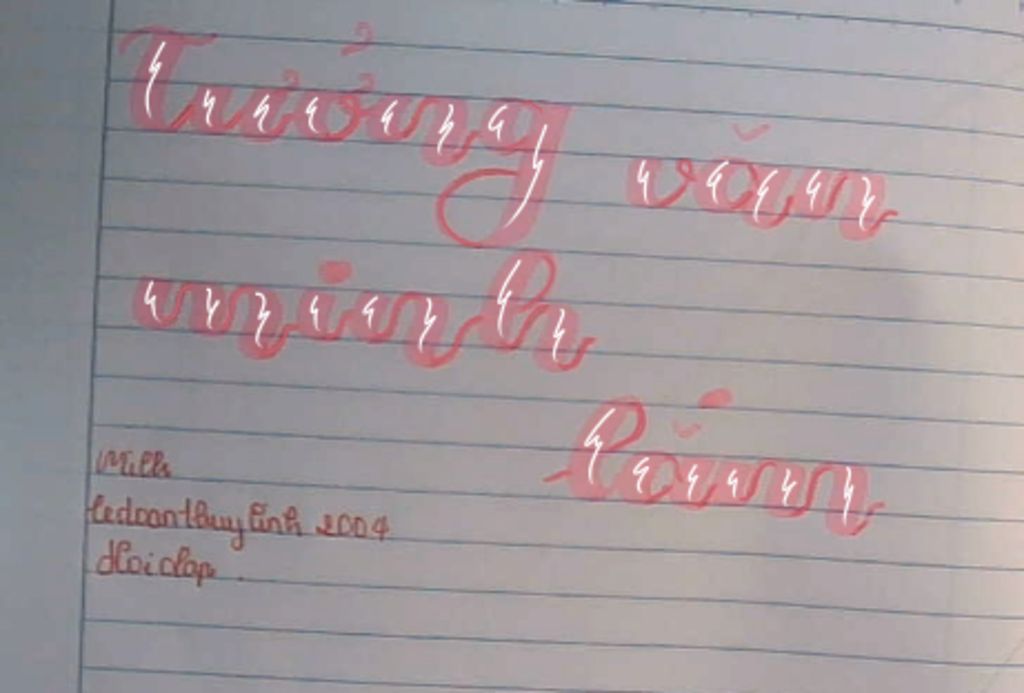 Tưởng văn
minh
lắm
ledoanthuylinh 2004
Hoidap.